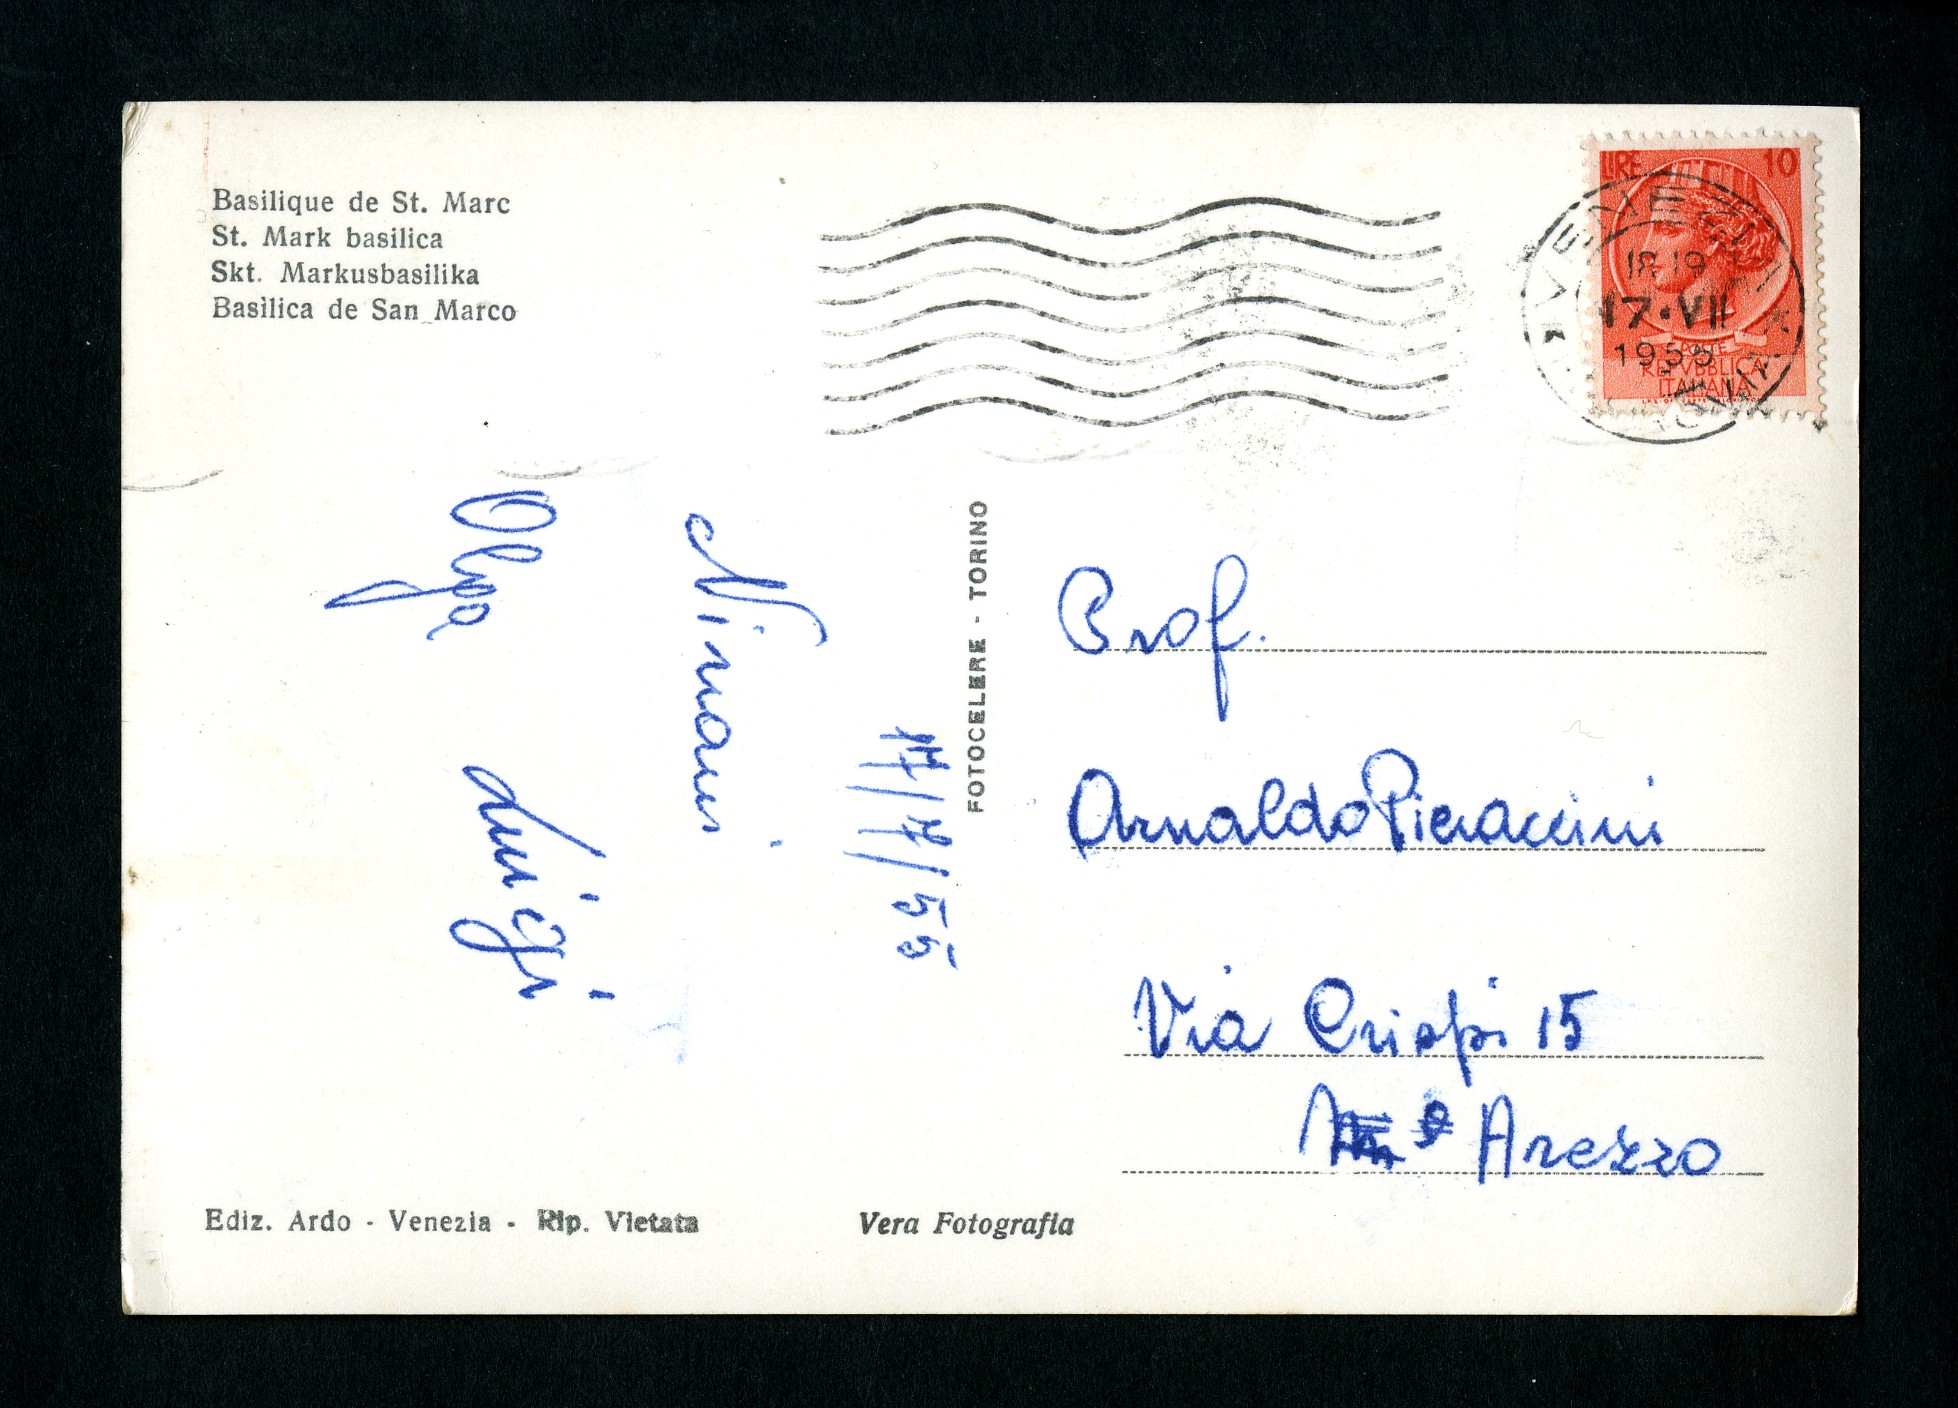 Basilique de St. Marc
St. Mark basilica
Skt. Markusbasilika
Basilica de San Marco
LIRE 10
VENEZIA
18-19
17·VII
1955
REPVBBLICA
ITALIANA
17/7/55
Olga
Luigi
FOTOCELERE - TORINO
Prof.
Arnaldo Pieraccini
Via Crispi 15
Arezzo
Ediz. Ardo - Venezia - Rip. Vietata
Vera Fotografia